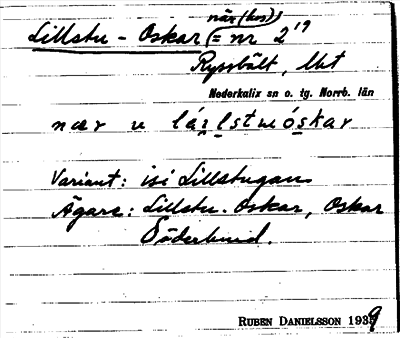 när (hos)
Lillstu - Oskar (= nr 2¹⁹
Ryssbält, Lht
Nederkalix sn o. tg. Norrb. län
nær
Variant: isi Lillstugan
Ägare: Lillstu-Oskar, Oskar
Söderlund.
RUBEN DANIELSSON 1939